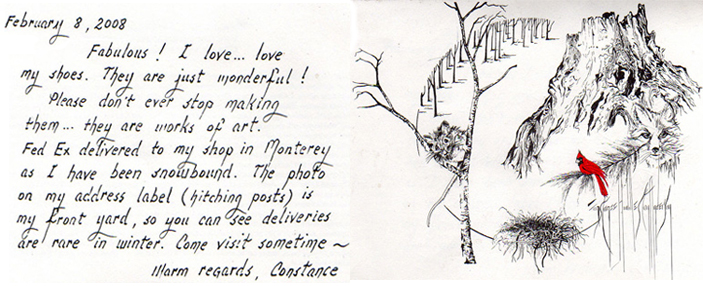 February 8, 2008
Fabulous! I love... love
my shoes. They are just wonderful!
Please don't ever stop making
them... they are works of art.
Fed Ex delivered to my shop in Monterey
as I have been snowbound. The photo
on my address label (hitching posts) is
my front yard, so you can see deliveries
are rare in winter. Come visit sometime ~
Warm regards, Constance